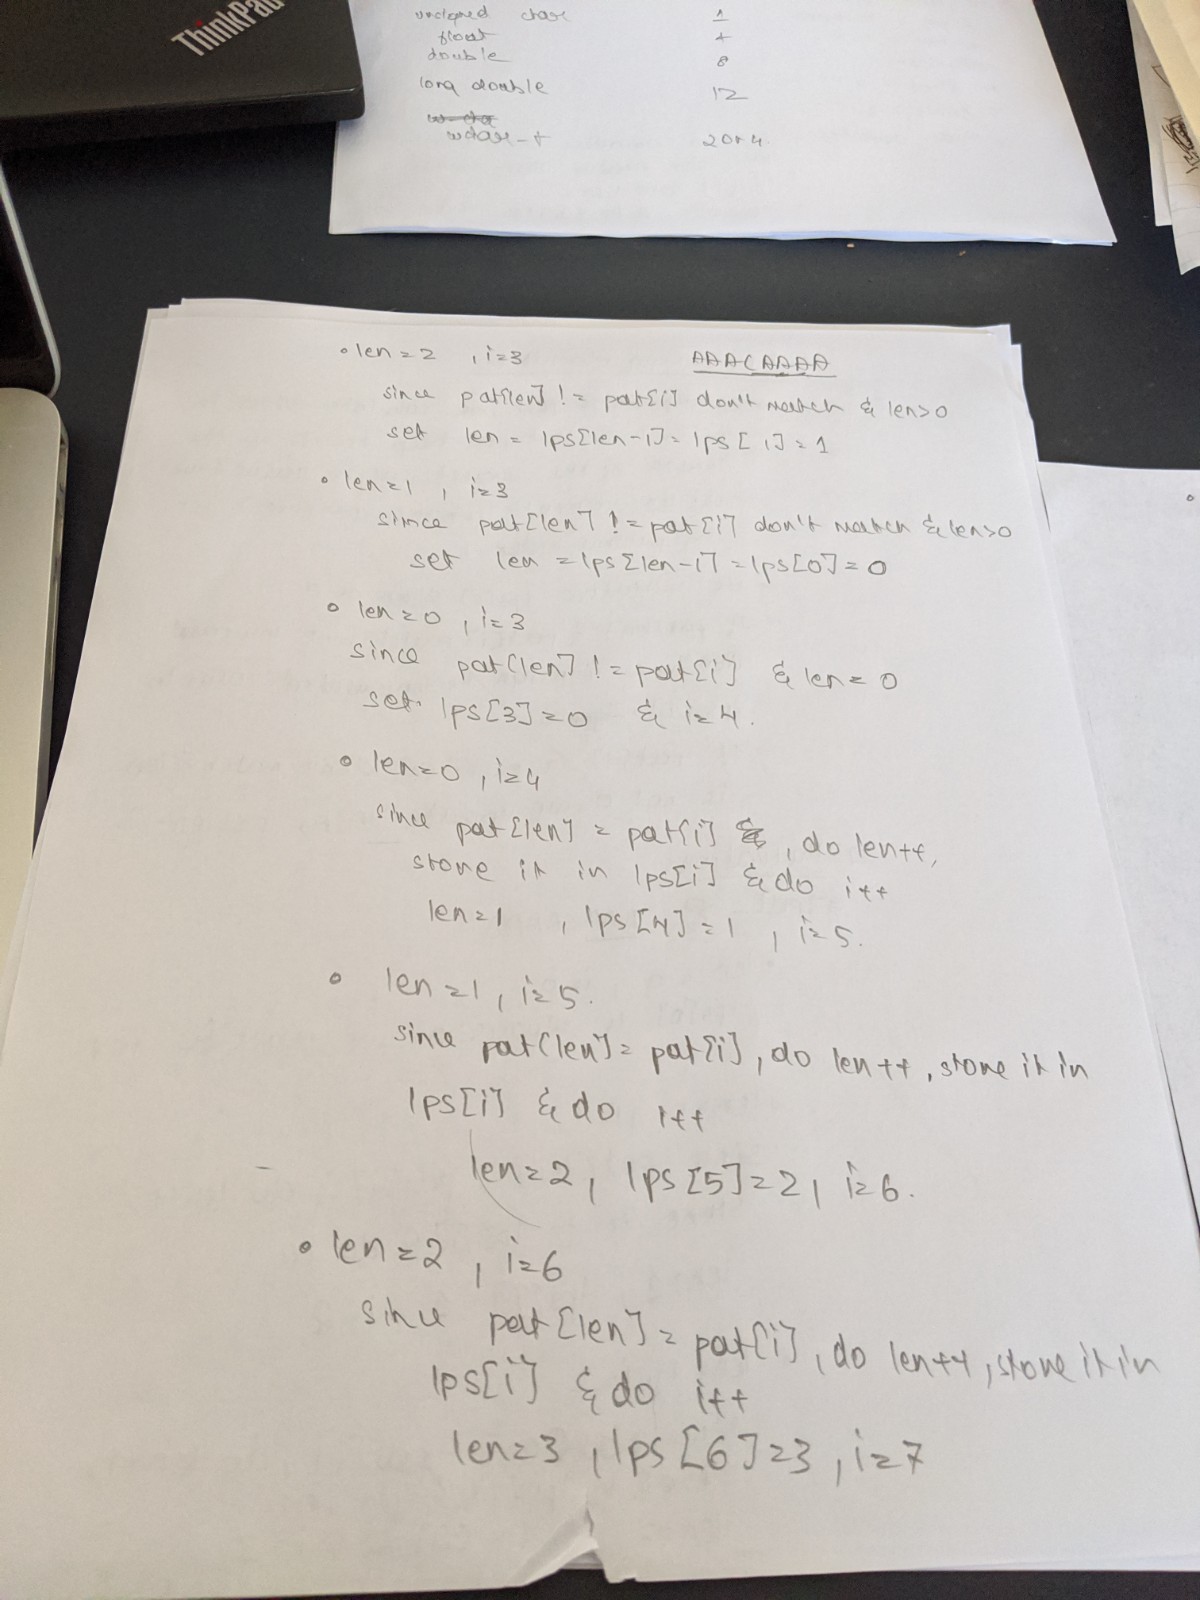 ThinkPad
unsigned char 1
float 4
double 8
long double 12
wchar-t 2 or 4.
• len = 2 , i=3 AAACAAAA
since pat[len] != pat[i] don't match & len>0
set len = lps[len-1] = lps[1] = 1
• len=1 , i=3
since pat[len] != pat[i] don't match & len>0
set len = lps[len-1] = lps[0] = 0
• len=0 , i=3
since pat[len] != pat[i] & len = 0
set lps[3]=0 & i=4.
• len=0 , i=4
since pat[len] = pat[i] , do len++,
store it in lps[i] & do i++
len=1 , lps[4]=1 , i=5.
• len=1, i=5.
since pat[len]= pat[i], do len++, store it in
lps[i] & do i++
len=2, lps[5]=2, i=6.
• len=2 , i=6
since pat[len]= pat[i], do len++, store it in
lps[i] & do i++
len=3, lps[6]=3, i=7